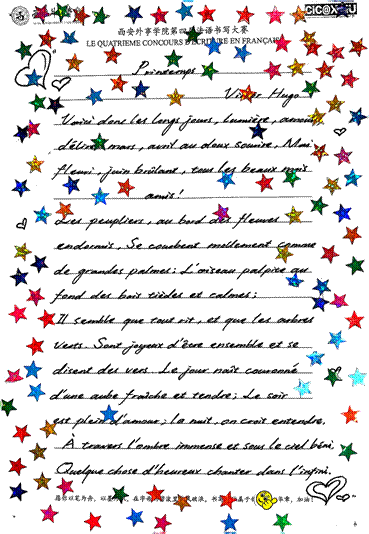 西安外事学院第四届法语书写大赛
LE QUATRIEME CONCOURS D'ECRITURE EN FRANÇAIS
Printemps
Victor Hugo
Voici donc les longs jours, lumière, amour,
délire! mars, avril au doux sourire, Mai
fleuri, juin brûlant, tous les beaux mois
amis!
Les peupliers, au bord des fleuves
endormis, Se courbent mollement comme
de grandes palmes; L'oiseau palpite au
fond des bois tièdes et calmes;
Il semble que tout rit, et que les arbres
verts. Sont joyeux d'être ensemble et se
disent des vers. Le jour naît couronné
d'une aube fraîche et tendre; Le soir
est plein d'amour; la nuit, on croit entendre,
À travers l'ombre immense et sous le ciel béni,
Quelque chose d'heureux chanter dans l'infini.